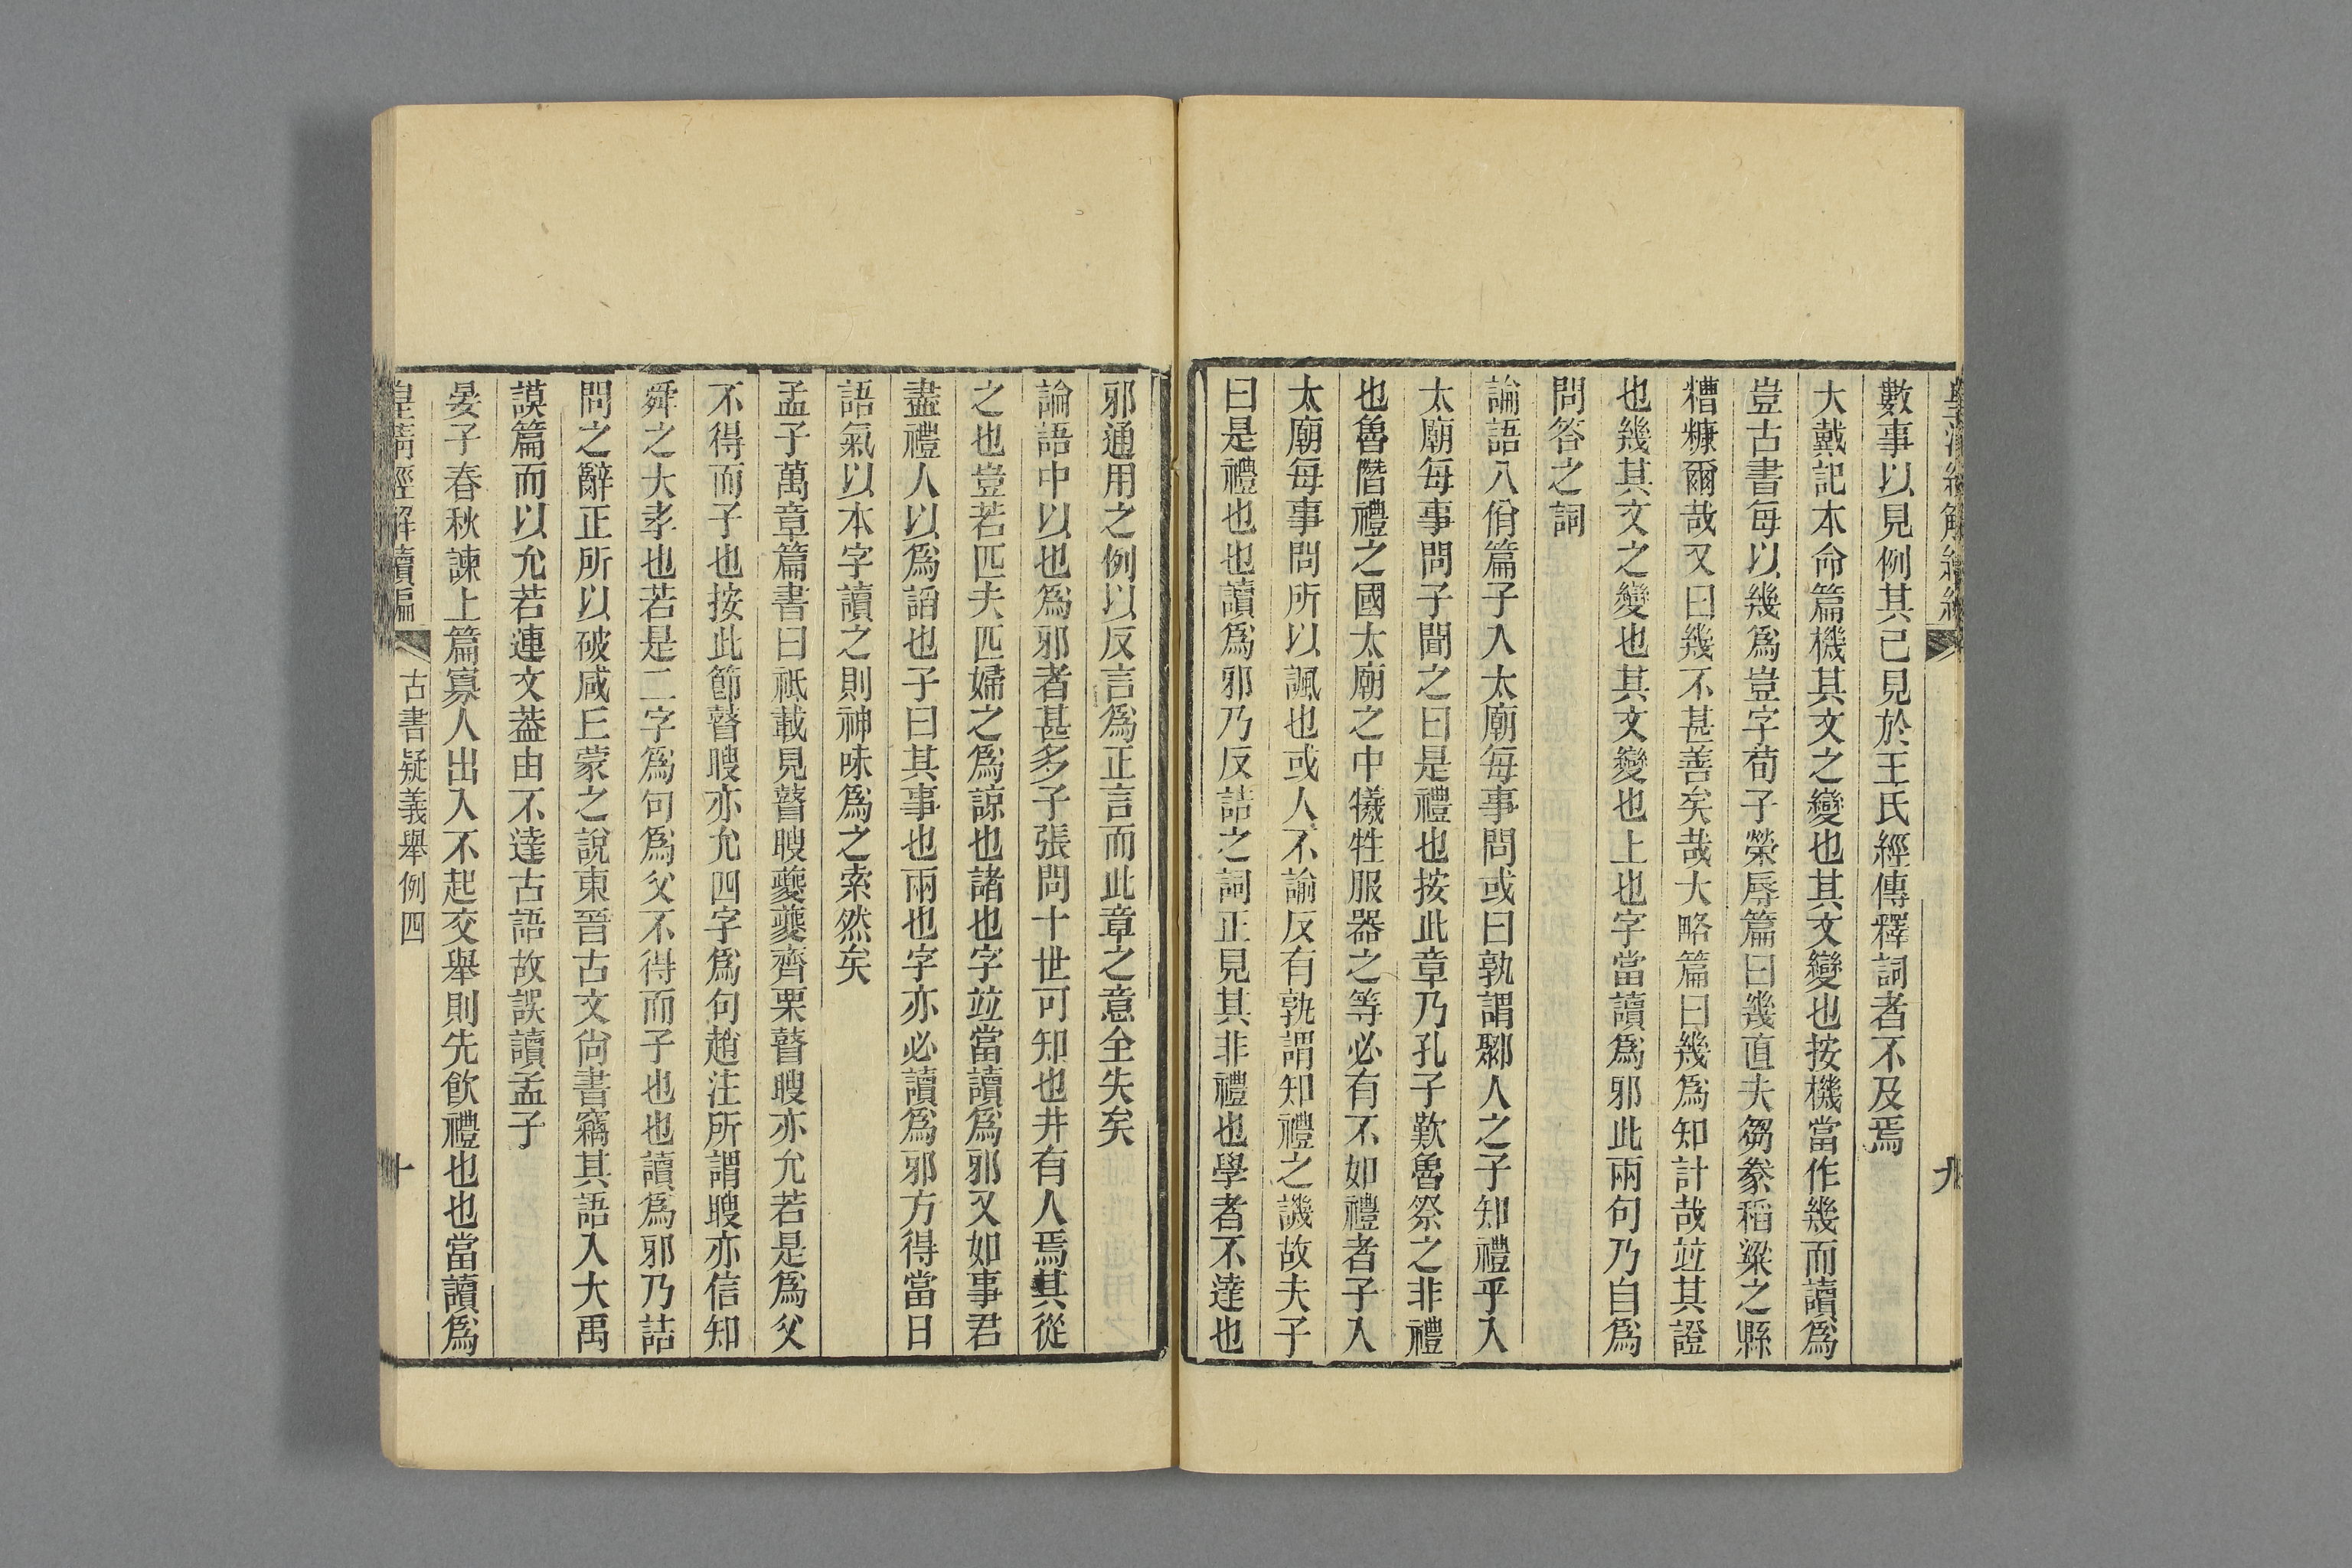 數事以見例其已見於王氏經傳釋詞者不及焉
大戴記本命篇機其文之變也其文變也按機當作幾而讀爲
豈古書每以幾爲豈字荀子榮辱篇曰幾直夫芻豢稻粱之縣
糟糠爾哉又曰幾不甚善矣哉大略篇曰幾爲知計哉竝其證
也幾其文之變也其文變也上也字當讀爲邪此兩句乃自爲
問答之詞
論語八佾篇子入太廟每事問或曰孰謂鄹人之子知禮乎入
太廟每事問子聞之曰是禮也按此章乃孔子歎魯祭之非禮
也魯僭禮之國太廟之中犧牲服器之等必有不如禮者子入
太廟每事問所以諷也或人不諭反有孰謂知禮之譏故夫子
曰是禮也也讀爲邪乃反詰之詞正見其非禮也學者不達也
九
邪通用之例以反言爲正言而此章之意全失矣
論語中以也爲邪者甚多子張問十世可知也井有人焉其從
之也豈若匹夫匹婦之爲諒也諸也字竝當讀爲邪又如事君
盡禮人以爲諂也子曰其事也兩也字亦必讀爲邪方得當日
語氣以本字讀之則神味爲之索然矣
孟子萬章篇書曰祗載見瞽瞍夔夔齊栗瞽瞍亦允若是爲父
不得而子也按此節瞽瞍亦允四字爲句趙注所謂瞍亦信知
舜之大孝也若是二字爲句爲父不得而子也也讀爲邪乃詰
問之辭正所以破咸丘蒙之說東晉古文尙書竊其語入大禹
謨篇而以允若連文葢由不達古語故誤讀孟子
晏子春秋諫上篇寡人出入不起交舉則先飲禮也也當讀爲
皇淸經解續編 古書疑義舉例四 十